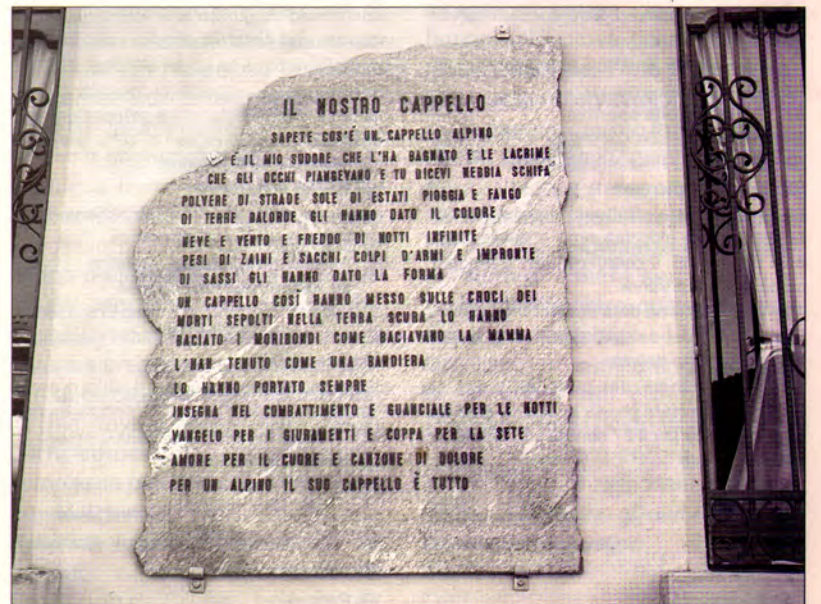 IL NOSTRO CAPPELLO
SAPETE COS'È UN CAPPELLO ALPINO
È IL MIO SUDORE CHE L'HA BAGNATO E LE LACRIME
CHE GLI OCCHI PIANGEVANO E TU DICEVI NEBBIA SCHIFA
POLVERE DI STRADE SOLE DI ESTATI PIOGGIA E FANGO
DI TERRE BALORDE GLI HANNO DATO IL COLORE
NEVE E VENTO E FREDDO DI NOTTI INFINITE
PESI DI ZAINI E SACCHI COLPI D'ARMI E IMPRONTE
DI SASSI GLI HANNO DATO LA FORMA
UN CAPPELLO COSÌ HANNO MESSO SULLE CROCI DEI
MORTI SEPOLTI NELLA TERRA SCURA LO HANNO
BACIATO I MORIBONDI COME BACIAVANO LA MAMMA
L'HAN TENUTO COME UNA BANDIERA
LO HANNO PORTATO SEMPRE
INSEGNA NEL COMBATTIMENTO E GUANCIALE PER LE NOTTI
VANGELO PER I GIURAMENTI E COPPA PER LA SETE
AMORE PER IL CUORE E CANZONE DI DOLORE
PER UN ALPINO IL SUO CAPPELLO È TUTTO